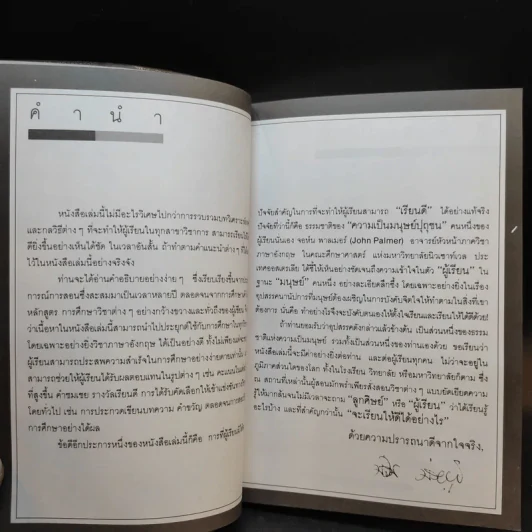 คำนำ
หนังสือเล่มนี้ไม่มีอะไรวิเศษไปกว่าการรวบรวมบทวิเคราะห์
และกลวิธีต่างๆ ที่จะทำให้ผู้เรียนในทุกสาขาวิชาการ สามารถเรียนได้
ดียิ่งขึ้นอย่างเห็นได้ชัด ในเวลาอันสั้น ถ้าทำตามคำแนะนำต่างๆ ที่
ไว้ในหนังสือเล่มนี้อย่างจริงจัง
ท่านจะได้อ่านคำอธิบายอย่างง่ายๆ ซึ่งเรียบเรียงขึ้นจาก
การณ์การสอนซึ่งสะสมมาเป็นเวลาหลายปี ตลอดจนจากการศึกษา
หลักสูตร การศึกษาวิชาต่างๆ อย่างกว้างขวางและทั่วถึงของผู้เขียน
ว่าเนื้อหาในหนังสือเล่มนี้สามารถนำไปประยุกต์ใช้กับการศึกษาในทุก
โดยเฉพาะอย่างยิ่งวิชาภาษาอังกฤษ ได้เป็นอย่างดี ทั้งไม่เพียงแต่
ผู้เรียนสามารถประสบความสำเร็จในการศึกษาอย่างง่ายดายเท่านั้น
สามารถช่วยให้ผู้เรียนได้รับผลตอบแทนในรูปต่างๆ เช่น คะแนน
ที่สูงขึ้น คำชมเชย รางวัลเรียนดี การได้รับคัดเลือกให้เข้าแข่งขัน
โดยทั่วไป เช่น การประกวดเขียนบทความ คำขวัญ ตลอดจน
การศึกษาอย่างได้ผล
ข้อดีอีกประการหนึ่งของหนังสือเล่มนี้ก็คือ การที่ผู้เขียน
ปัจจัยสำคัญในการที่จะทำให้ผู้เรียนสามารถ “เรียนดี” ได้อย่างแท้จริง
ปัจจัยที่ว่านี้ก็คือ ธรรมชาติของ “ความเป็นมนุษย์ปุถุชน” คนหนึ่งของ
ผู้เรียนนั่นเอง จอห์น พาลเมอร์ (John Palmer) อาจารย์หัวหน้าภาควิชา
ภาษาอังกฤษ ในคณะศึกษาศาสตร์ แห่งมหาวิทยาลัยนิวเซาท์เวล ประ
เทศออสเตรเลีย ได้ชี้ให้เห็นอย่างชัดเจนถึงความเข้าใจในตัว “ผู้เรียน” ใน
ฐานะ “มนุษย์” คนหนึ่ง อย่างละเอียดลึกซึ้ง โดยเฉพาะอย่างยิ่งในเรื่อง
อุปสรรคนานัปการที่มนุษย์ต้องเผชิญในการบังคับจิตใจให้ทำตามในสิ่งที่เขา
ต้องการ นั่นคือ ทำอย่างไรจึงจะบังคับตนเองให้ตั้งใจเรียนและเรียนให้ได้ดีด้วย!
ถ้าท่านยอมรับว่าอุปสรรคดังกล่าวแล้วข้างต้น เป็นส่วนหนึ่งของธรรม
ชาติแห่งความเป็นมนุษย์ รวมทั้งเป็นส่วนหนึ่งของท่านเองด้วย ขอเรียนว่า
หนังสือเล่มนี้จะมีค่าอย่างยิ่งต่อท่าน และต่อผู้เรียนทุกคน ไม่ว่าจะอยู่ใน
ภูมิภาคส่วนใดของโลก ทั้งในโรงเรียน วิทยาลัย หรือมหาวิทยาลัยก็ตาม ซึ่ง
ณ สถานที่เหล่านั้นผู้สอนมักพร่ำเพียรสั่งสอนวิชาต่างๆ แบบยัดเยียดความ
รู้ให้มากล้นจนไม่มีเวลาจะถาม “ลูกศิษย์” หรือ “ผู้เรียน” ว่าได้เรียนรู้
อะไรบ้าง และที่สำคัญกว่านั้น “จะเรียนให้ดีได้อย่างไร”
ด้วยความปรารถนาดีจากใจจริง,